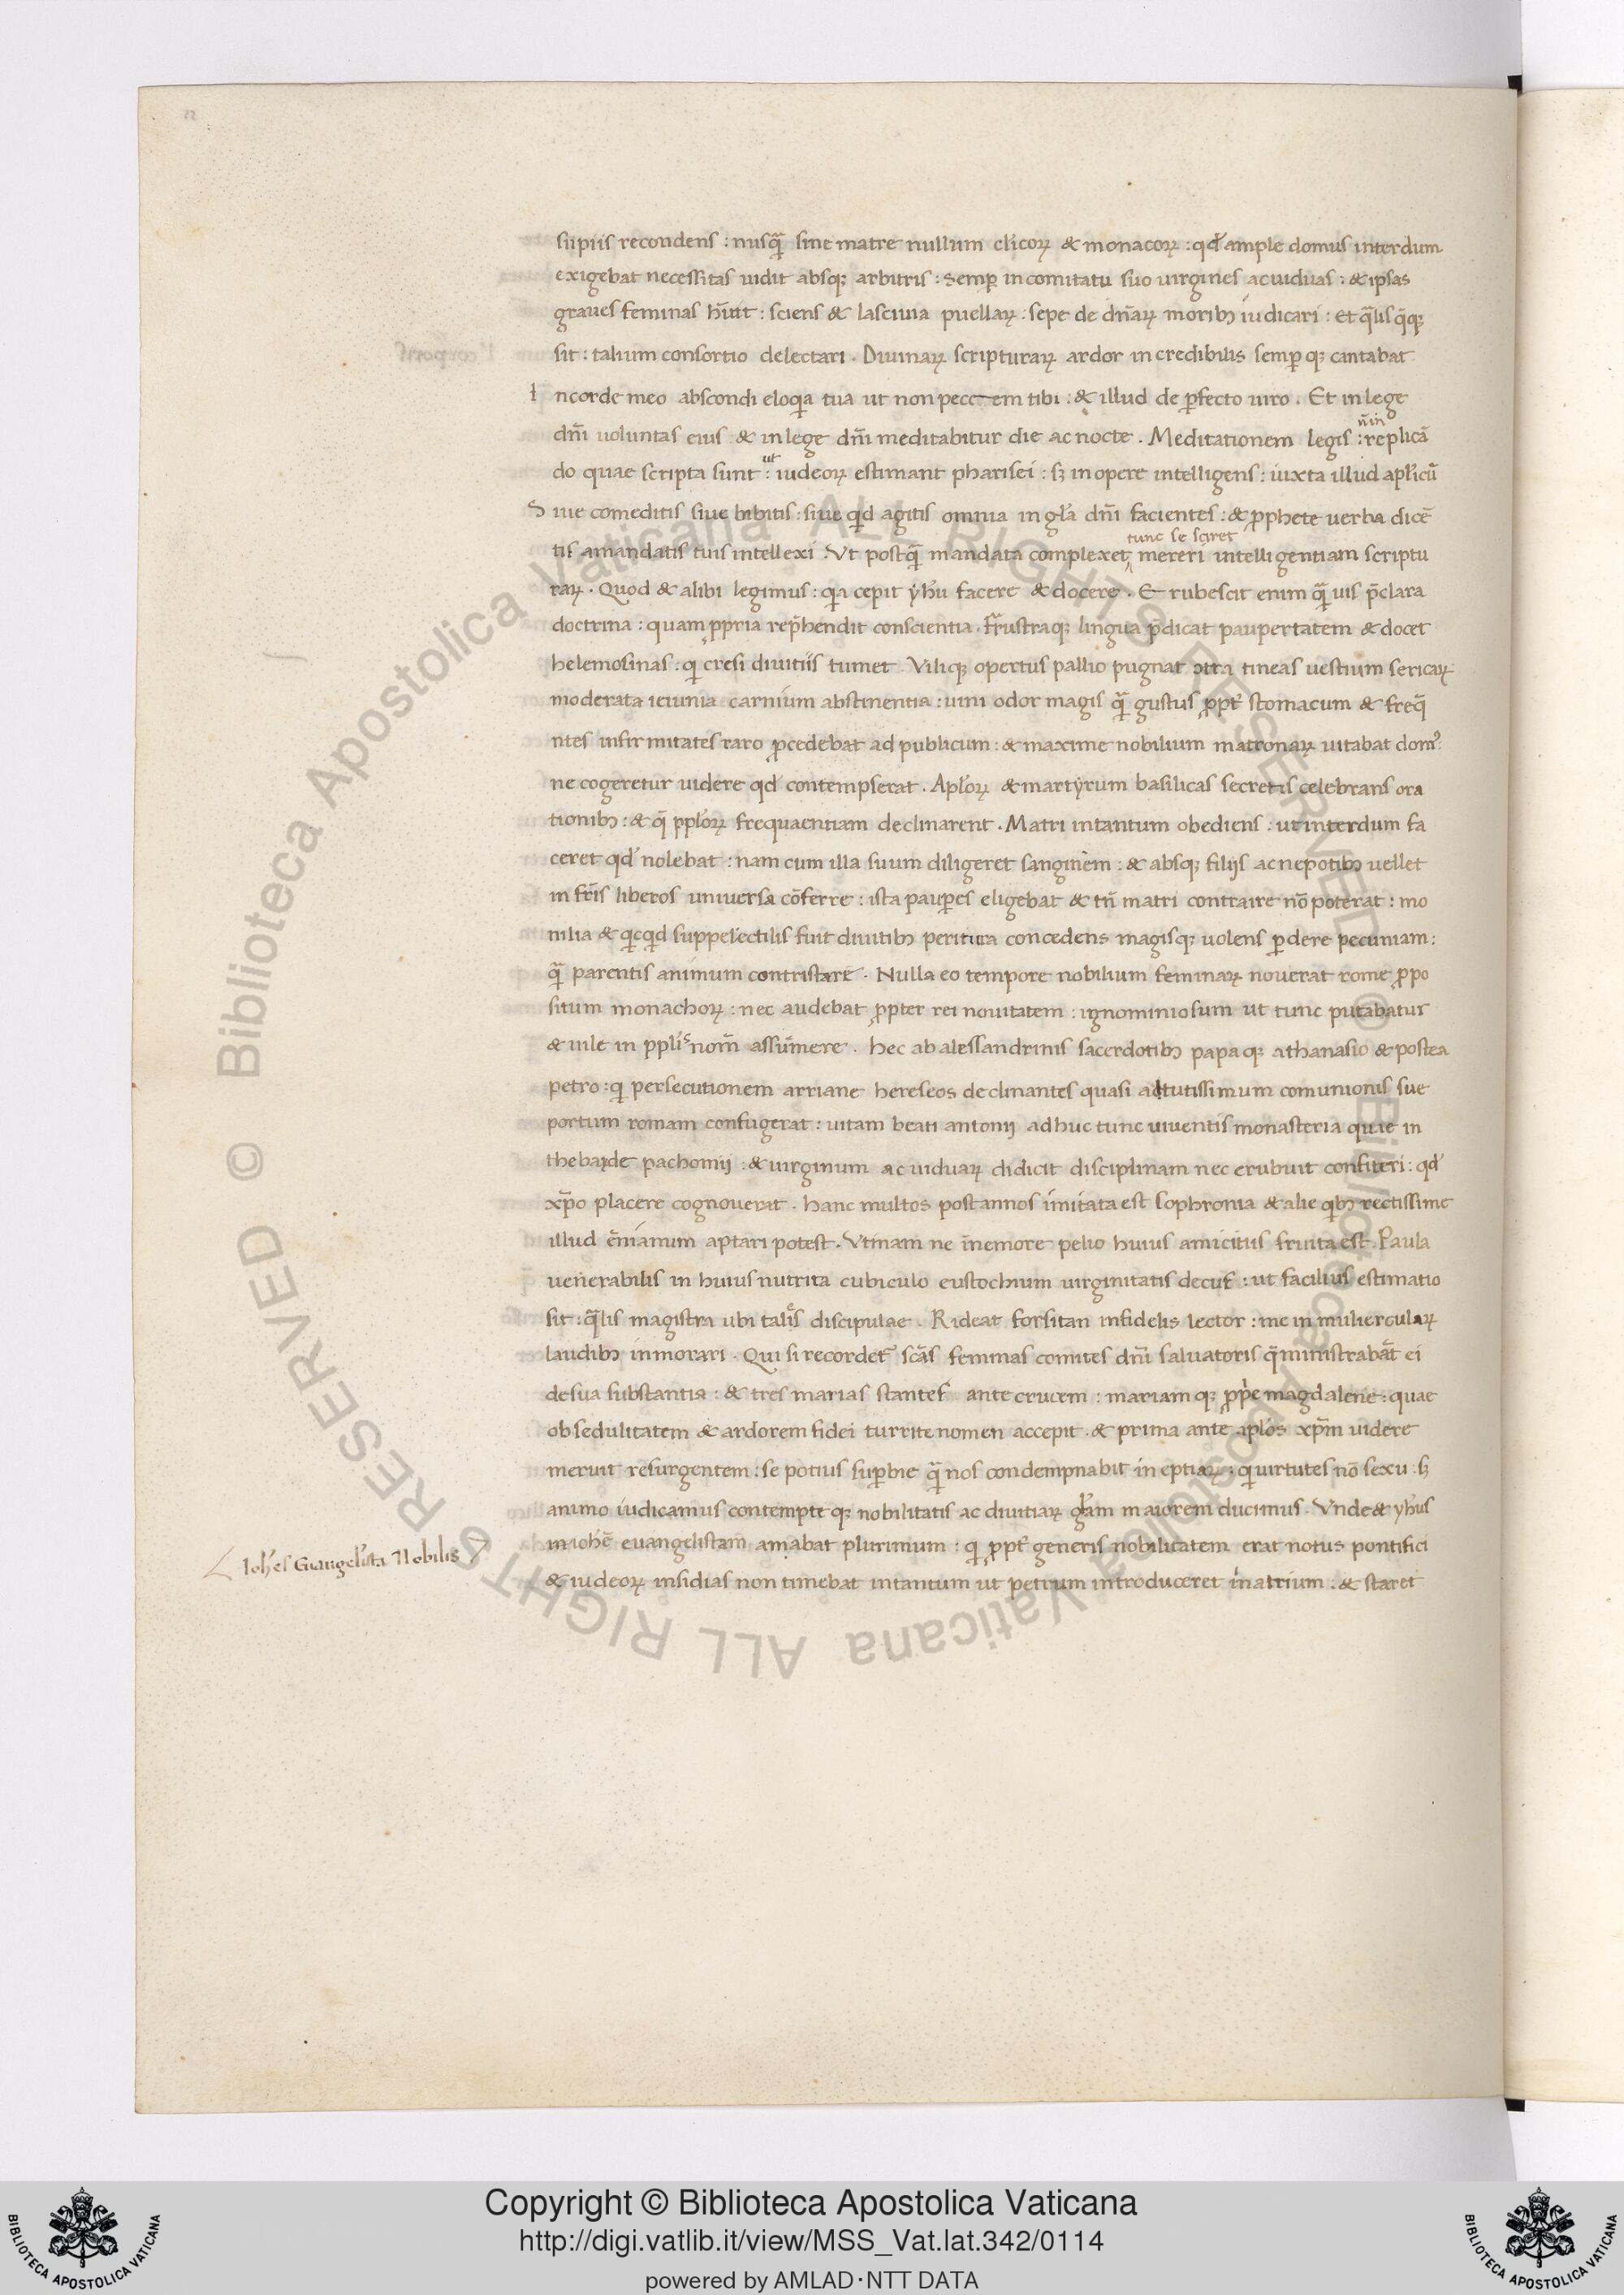 supiis recondens : nusq̃ sine matre nullum cl̃icoꝝ & monacoꝝ : qđ ample domus interdum
exigebat necessitas uidit absqꝫ arbitris : semꝑ in comitatu suo uirgines ac uiduas : & ipsas
graues feminas hũit : sciens & lasciuia puellaꝝ : sepe de dñaꝝ moribꝫ iudicari : et q̃lis q̃qꝫ
sit : talium consortio delectari . Diuinaꝝ scripturaꝝ ardor incredibilis semꝑ qꝫ cantabat
I ncorde meo abscondi eloq̃a tua ut non peccem tibi : & illud de ꝑfecto uiro . Et in lege
dñi uoluntas eius & in lege dñi meditabitur die ac nocte . Meditationem legis : ñ in replicã
do quae scripta sunt : ut iudeoꝝ estimant pharisei : sꝫ in opere intelligens : iuxta illud apl̃icũ
S iue comeditis siue bibitis : siue qd agitis omnia in gl̃a dñi facientes : & ꝓphete uerba dicẽ
tis amandatis tuis intellexi . Ut postq̃ mandata complexet tunc se sciret mereri intelligentiam scriptu
raꝝ . Quod & alibi legimus : qa cepit yhũ facere & docere . Erubescit enim q̃uis p̃clara
doctrina : quam ꝓpria rep̃hendit conscientia . Frustraqꝫ lingua p̃dicat paupertatem & docet
helemosinas : qi cresi diuitiis tumet . Viliqꝫ opertus pallio pugnat ꝯtra tineas uestium sericaꝝ
moderata ieiunia carnium abstinentia : uini odor magis q̃ gustus ꝓpt̃ stomacum & freq̃
ntes infirmitates raro ꝓcedebat ad publicum : & maxime nobilium matronaꝝ uitabat domꝰ :
ne cogeretur uidere qđ contempserat . Apl̃oꝝ & martyrum basilicas secretis celebrans ora
tionibꝫ : & q̃ ppl̃oꝝ frequaentiam declinarent . Matri intantum obediens : ut interdum fa
ceret qđ nolebat : nam cum illa suum diligeret sanginem : & absqꝫ filijs ac nepotibꝫ uellet
in fr̃is liberos uniuersa cõferre : ista pauꝑes eligebat & tñ matri contraire nõ poterat : mo
nilia & qicqid suppelectilis fuit diuitibꝫ peritura concedens magisqꝫ uolens ꝑdere pecuniam :
q̃ parentis animum contristare . Nulla eo tempore nobilium feminaꝝ nouerat rome ꝓpo
situm monachoꝝ : nec audebat ꝓpter rei nouitatem : ignominiosum ut tunc putabatur
& uile in ppl̃is nom̃ assũmere . hec ab alessandrinis sacerdotibꝫ papa qꝫ athanasio & postea
petro : qi persecutionem arriane hereseos declinantes quasi ad tutissimum comunionis sue
portum romam confugerat : uitam beati antonij adhuc tunc uiuentis monasteria quae in
thebaide pachomij : & uirginum ac uiduaꝝ didicit disciplinam nec erubuit confiteri : qđ
xp̃o placere cognouerat . hanc multos post annos imitata est sophronia & alie qibꝫ rectissime
illud ẽnianum aptari potest . Utinam ne in nemore pelio huius amicitiis fruita est . Paula
uenerabilis in huius nutrita cubiculo eustochium uirginitatis decus : ut facilius estimatio
sit : q̃lis magistra ubi tales discipulae . Rideat forsitan infidelis lector : me in muliercularꝝ
laudibꝫ inmorari . Qui si recordet̃ scãs feminas comites dñi saluatoris q̃ ministrabãt ei
desua substantia : & tres marias stantes ante crucem : mariam qꝫ ꝓp̃e magdalene : quae
ob sedulitatem & ardorem fidei turrite nomen accepit . & prima ante apl̃os xp̃m uidere
meruit resurgentem : se potius suꝑbie q̃ nos condempnabit ineptiaꝝ : qi uirtutes nõ sexu : sꝫ
animo iudicamus contempte qꝫ nobilitatis ac diuitiaꝝ gl̃am maiorem ducimus . Unde & yhus
in iohẽ euangelistam amabat plurimum : qi ꝓpt̃ generis nobilitatem erat notus pontifici
& iudeoꝝ insidias non timebat intantum ut petrum introduceret in atrium . & staret
Ioh̃es Euangel̃ista Nobilis
Copyright © Biblioteca Apostolica Vaticana
http://digi.vatlib.it/view/MSS_Vat.lat.342/0114
powered by AMLAD·NTT DATA
BIBLIOTECA APOSTOLICA VATICANA
BIBLIOTECA APOSTOLICA VATICANA
Biblioteca Apostolica Vaticana ALL RIGHTS RESERVED © Biblioteca Apostolica Vaticana ALL RIGHTS RESERVED ©